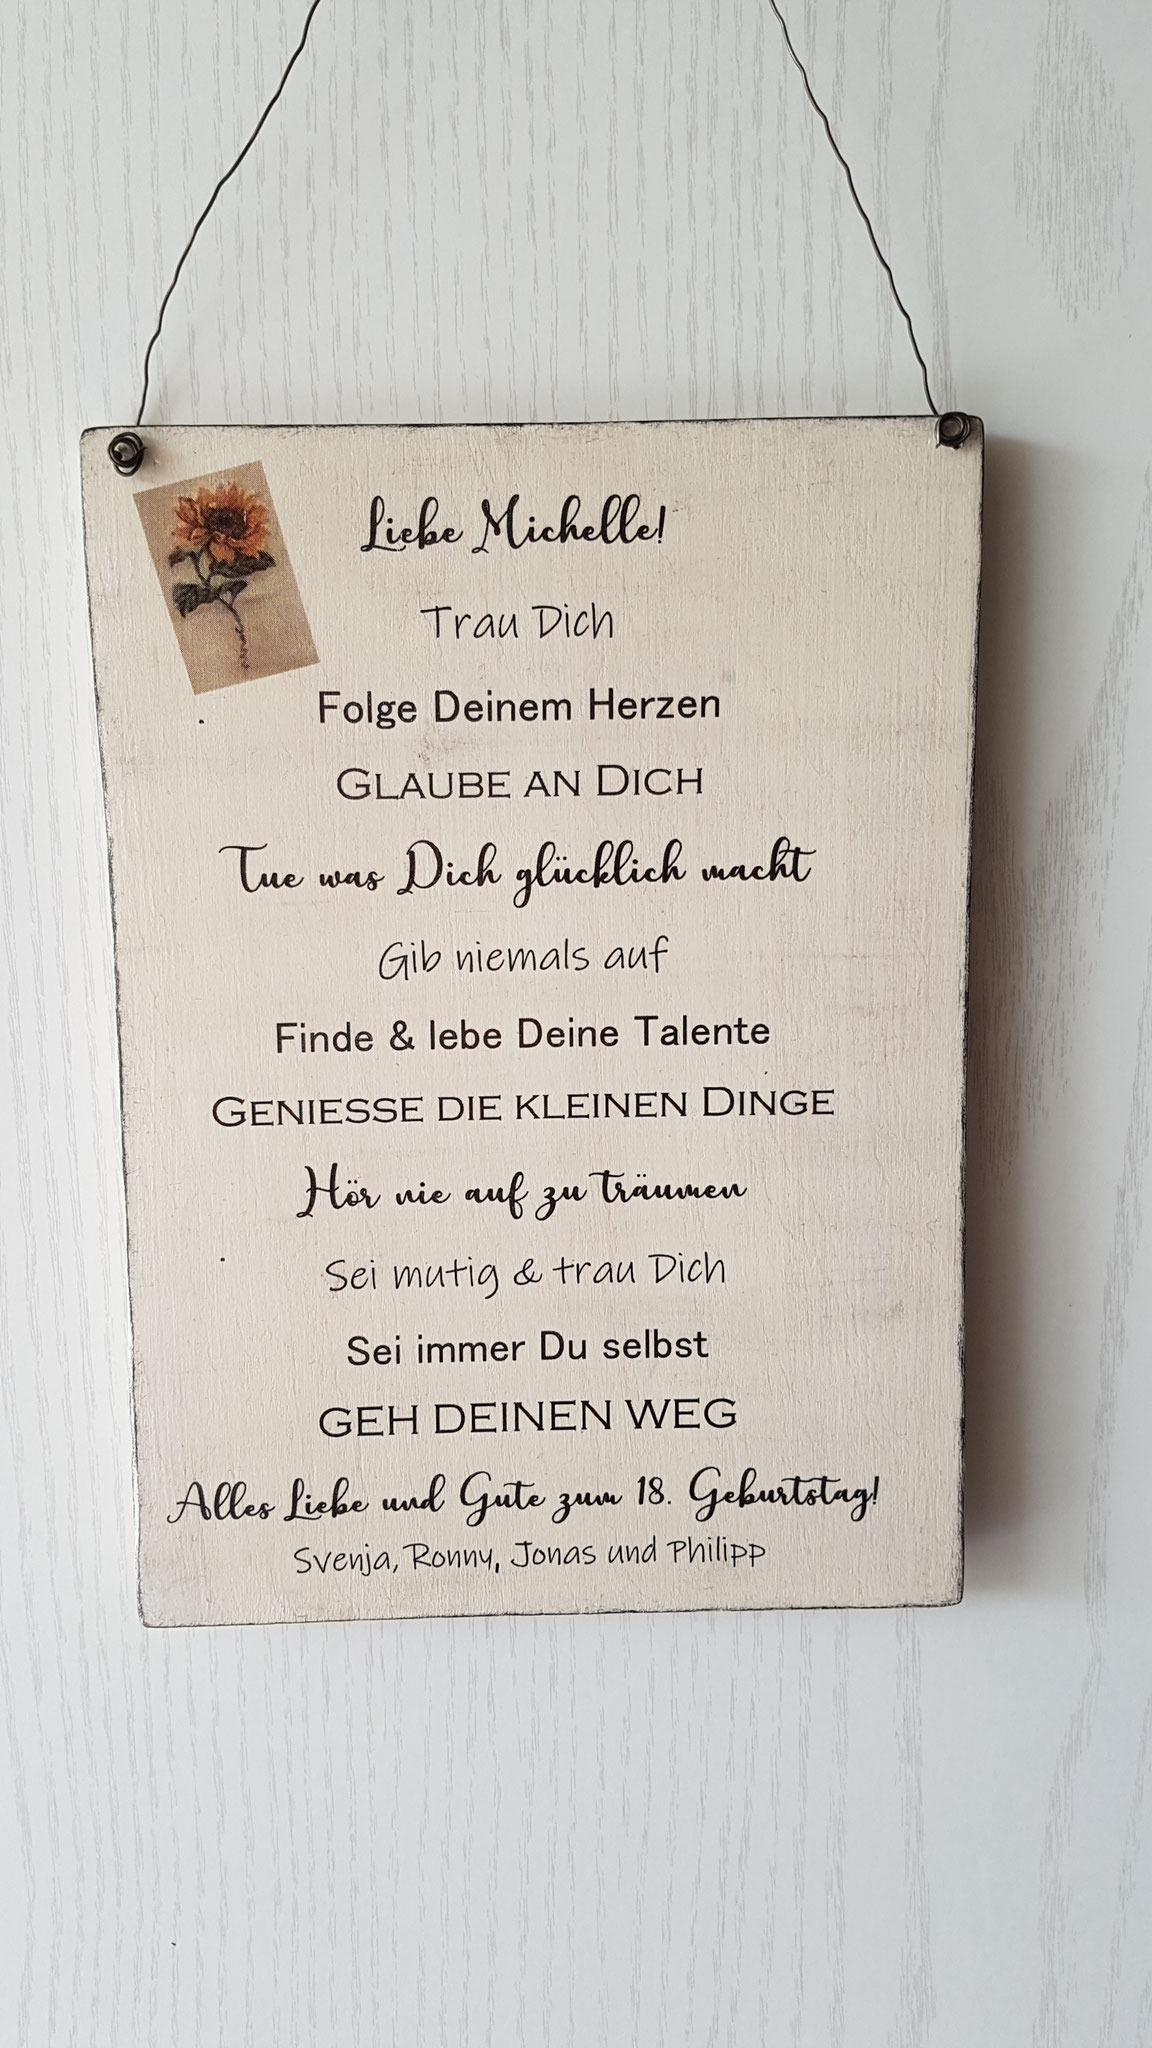 Liebe Michelle!
Trau Dich
Folge Deinem Herzen
GLAUBE AN DICH
Tue was Dich glücklich macht
Gib niemals auf
Finde & lebe Deine Talente
GENIESSE DIE KLEINEN DINGE
Hör nie auf zu träumen
Sei mutig & trau Dich
Sei immer Du selbst
GEH DEINEN WEG
Alles Liebe und Gute zum 18. Geburtstag!
Svenja, Ronny, Jonas und Philipp